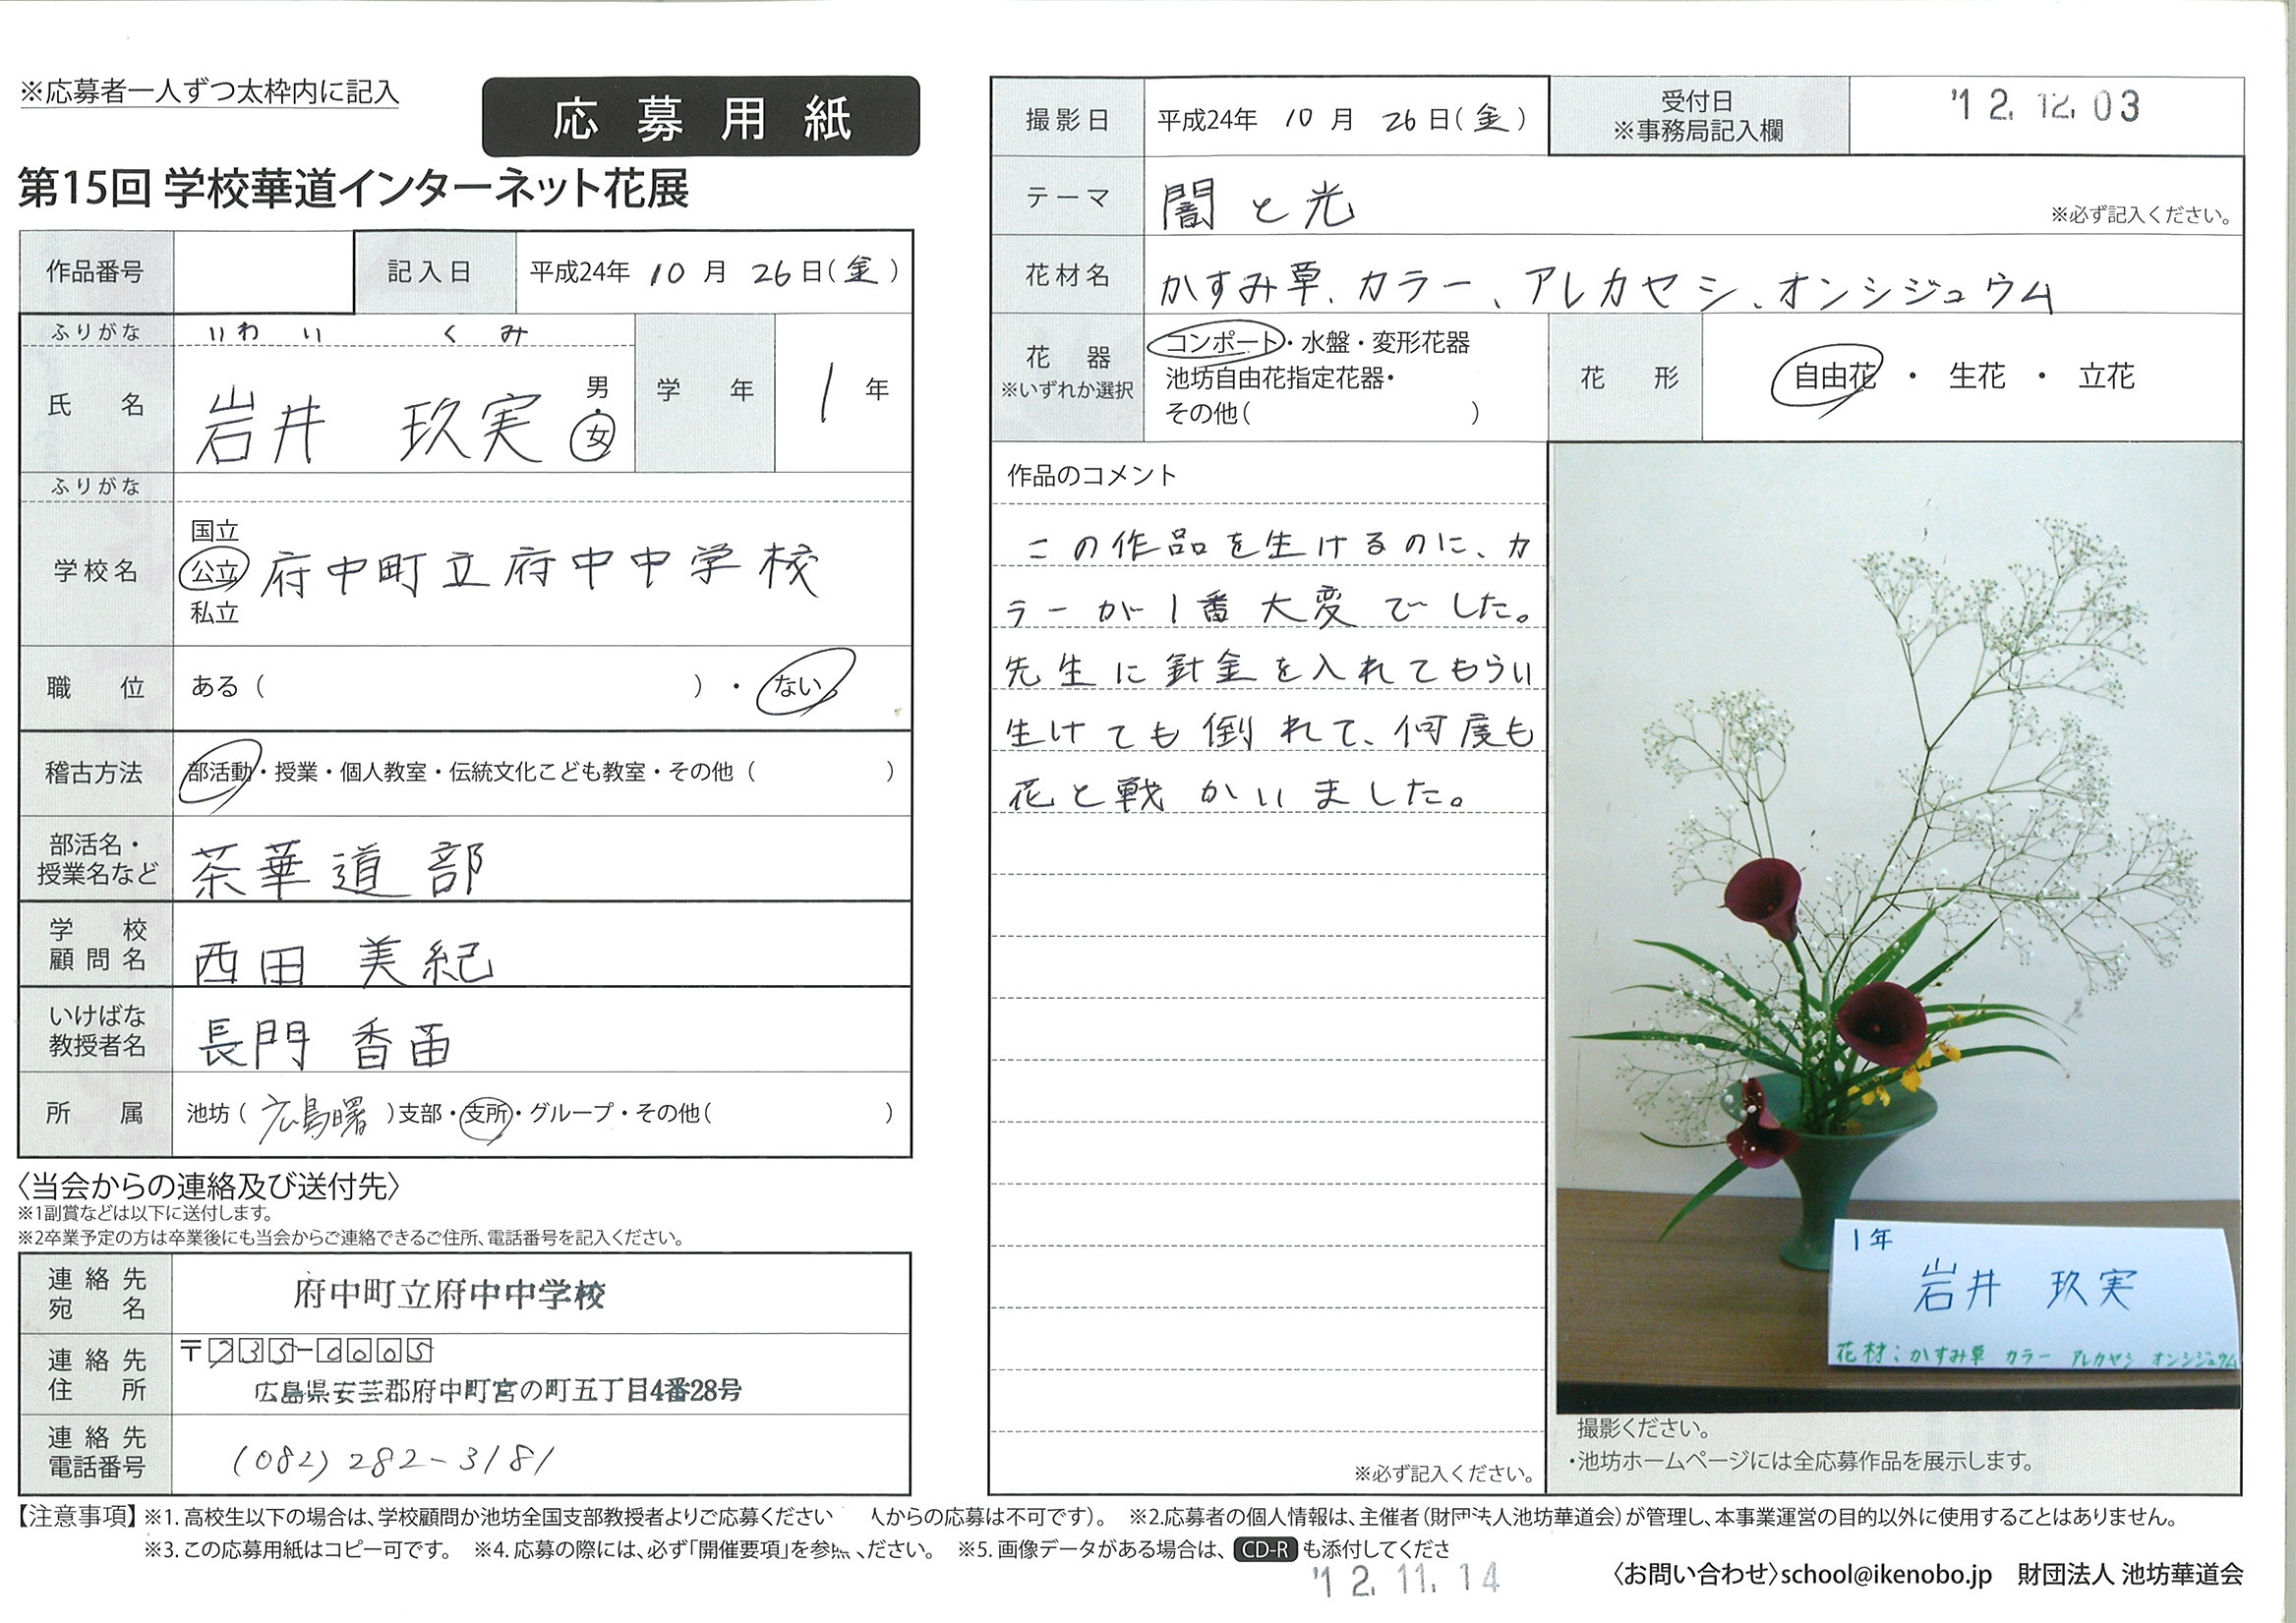 ※応募者一人ずつ太枠内に記入
応募用紙
第15回 学校華道インターネット花展
作品番号
記入日 平成24年 10月 26日(金)
ふりがな いわい くみ
氏名 岩井 玖実 男・女
学年 1年
ふりがな
学校名 国立 公立 私立 府中町立府中中学校
職位 ある( )・ない
稽古方法 部活動・授業・個人教室・伝統文化こども教室・その他( )
部活名・授業名など 茶華道部
学校顧問名 西田 美紀
いけばな教授者名 長門 香
所属 池坊(広島曙)支部・支所・グループ・その他( )
〈当会からの連絡及び送付先〉
※1副賞などは以下に送付します。
※2卒業予定の方は卒業後にも当会からご連絡できるご住所、電話番号を記入ください。
連絡先宛名 府中町立府中中学校
連絡先住所 〒735-0005
広島県安芸郡府中町宮の町五丁目4番28号
連絡先電話番号 (082)282-3181
撮影日 平成24年 10月 26日(金)
受付日 ※事務局記入欄 '12.12.03
テーマ 闇と光 ※必ず記入ください。
花材名 かすみ草、カラー、アレカヤシ、オンシジュウム
花器 ※いずれか選択 コンポート・水盤・変形花器
池坊自由花指定花器・
その他( )
花形 自由花・生花・立花
作品のコメント
この作品を生けるのに、カ
ラーが1番大変でした。
先生に針金を入れてもらい
生けても倒れて、何度も
花と戦かいました。
※必ず記入ください。
1年
岩井 玖実
花材:かすみ草 カラー アレカヤシ オンシジュウム
撮影ください。
・池坊ホームページには全応募作品を展示します。
【注意事項】※1.高校生以下の場合は、学校顧問か池坊全国支部教授者よりご応募ください 人からの応募は不可です)。 ※2.応募者の個人情報は、主催者(財団法人池坊華道会)が管理し、本事業運営の目的以外に使用することはありません。
※3.この応募用紙はコピー可です。 ※4.応募の際には、必ず「開催要項」を参照ください。 ※5.画像データがある場合は、CD-Rも添付してくださ
'12.11.14
〈お問い合わせ〉school@ikenobo.jp 財団法人 池坊華道会